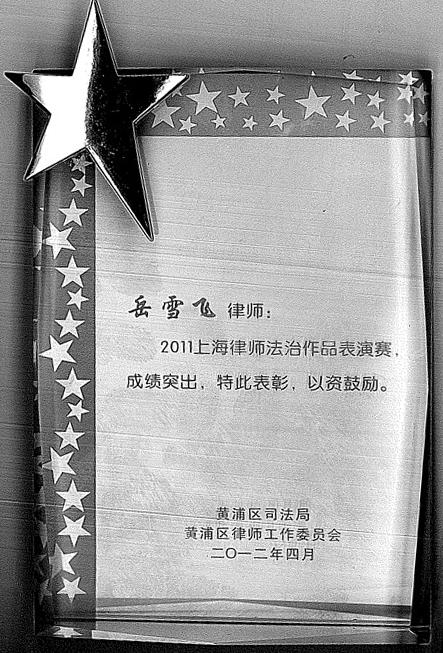 岳雪飞 律师：
2011上海律师法治作品表演赛，
成绩突出，特此表彰，以资鼓励。
黄浦区司法局
黄浦区律师工作委员会
二〇一二年四月